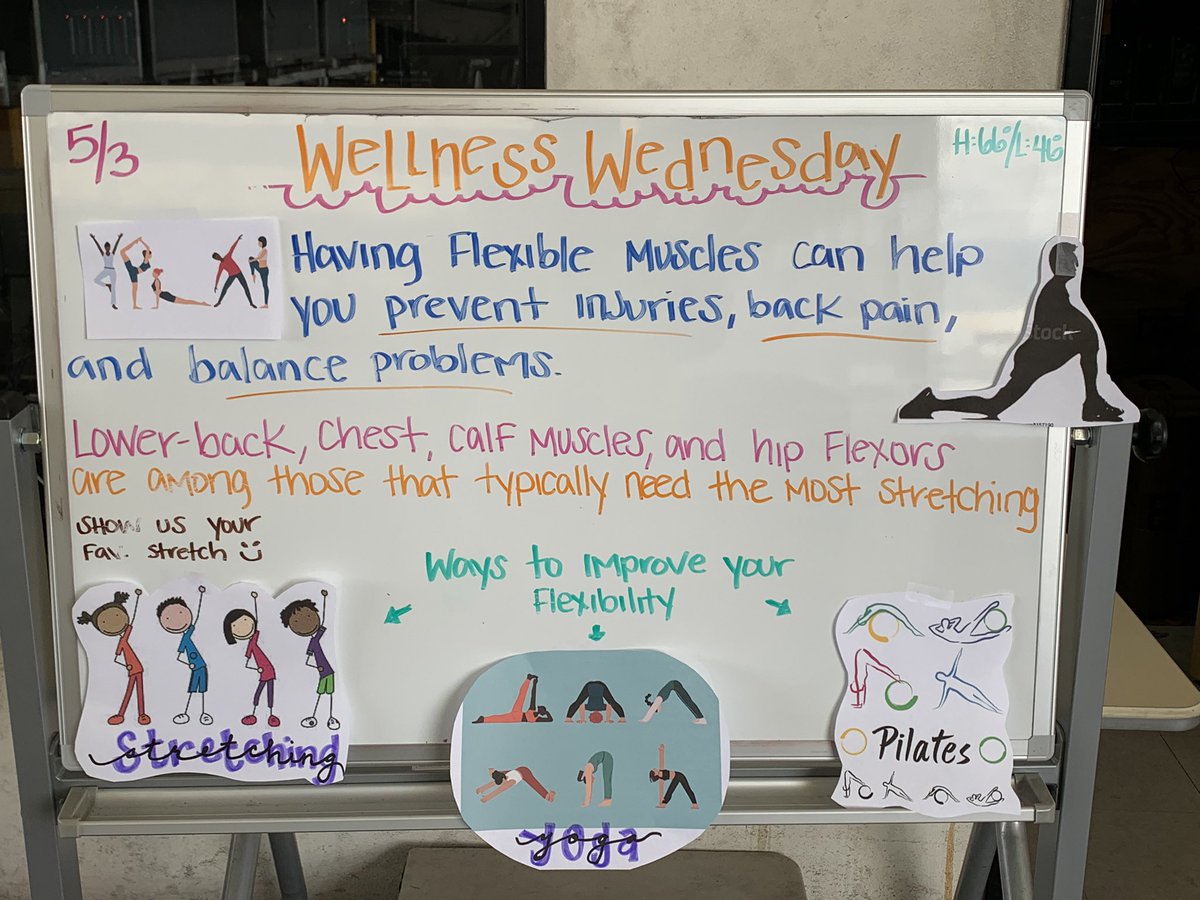 5/3
Wellness Wednesday
H:66°/L:46°
Having Flexible Muscles can help
you prevent injuries, back pain,
and balance problems.
stock
Lower-back, Chest, calf Muscles, and hip Flexors
are among those that typically need the Most stretching
Show us your
Fav. stretch
Ways to improve your
Flexibility
Stretching
yoga
Pilates